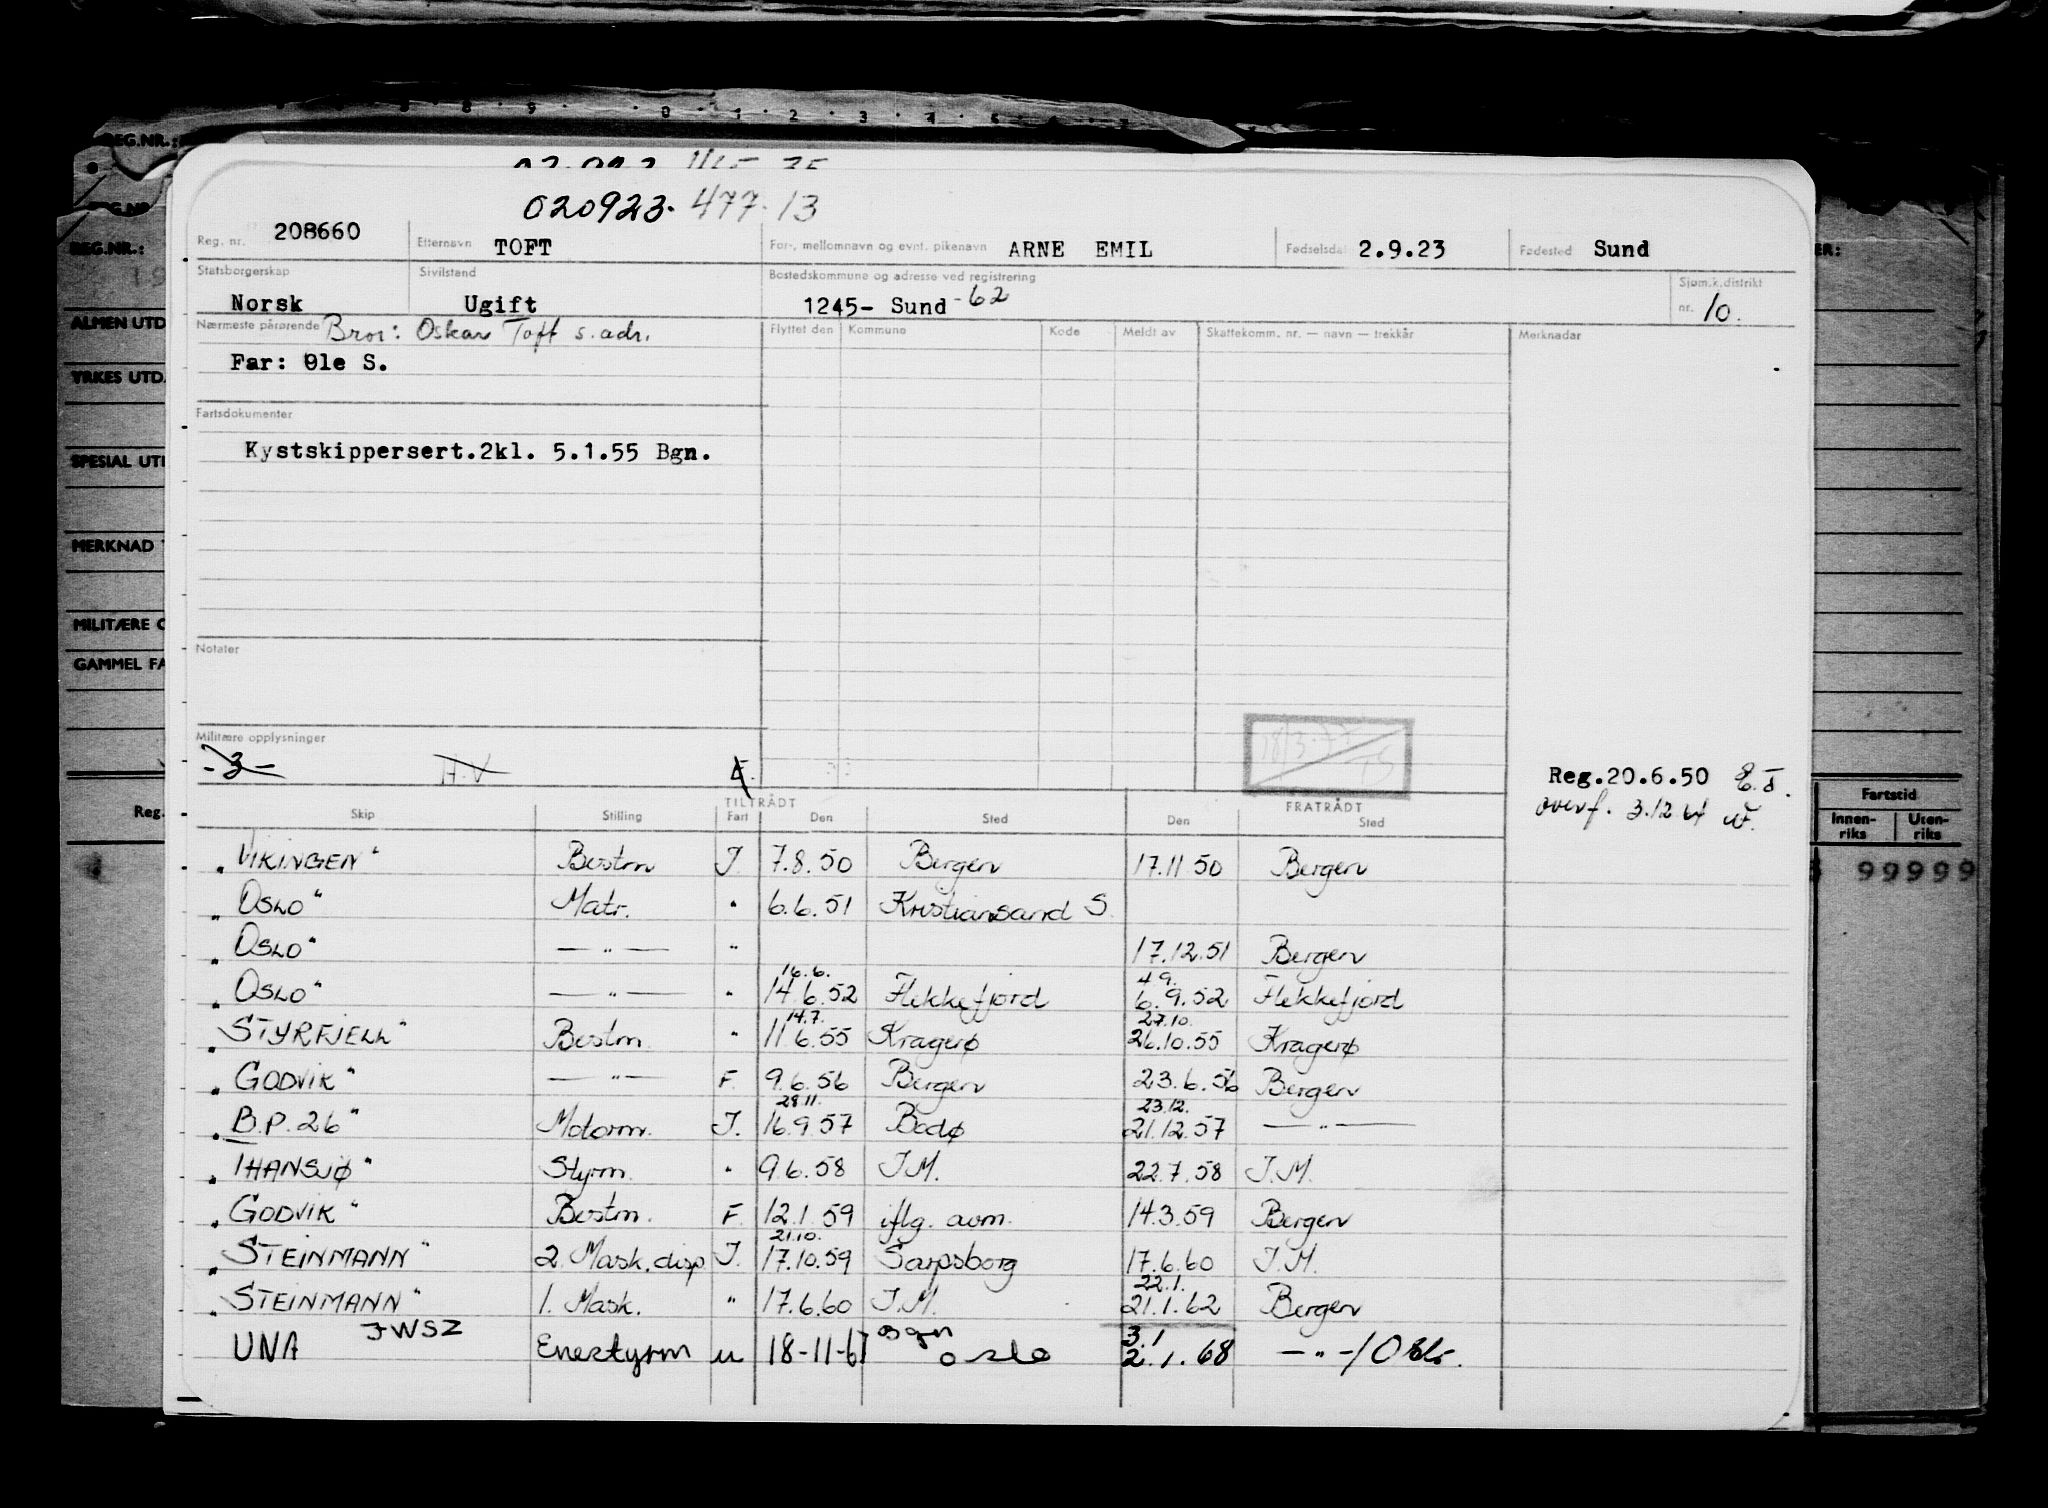 020923. 477.13
Reg. nr. 208660 Etternavn TOFT For-, mellomnavn og evnt. pikenavn ARNE EMIL Fødselsdat 2.9.23 Fødested Sund
Statsborgerskap Norsk Sivilstand Ugift Bostedskommune og adresse ved registrering 1245- Sund -62 Sjøm.k.distrikt nr. 10.
Nærmeste pårørende Bror: Oskar Toft s. adr. Flyttet den Kommune Kode Meldt av Skattekomm. nr. — navn — trekkår Merknader
Far: Ole S.
Fartsdokumenter
Kystskippersert.2kl. 5.1.55 Bgn.
Notater
Militære opplysninger
-3- H.V
Reg.20.6.50 E.T.
overf. 3.12.64
TILTRÅDT FRATRÅDT
Skip Stilling Fart Den Sted Den Sted
"VIKINGEN" Bestm I. 7.8.50 Bergen 17.11 50 Bergen
"OSLO" Matr. " 6.6.51 Kristiansand S.
"OSLO" — " — " 17.12.51 Bergen
16.6. 4 9.
"OSLO" — " — " 14.6.52 Flekkefjord 6.9.52 Flekkefjord
14.7. 27.10.
"STYRFJELL" Bestm. " 11 6.55 Kragerø 26.10.55 Kragerø
"GODVIK" — " — F. 9.6.56 Bergen 23.6.56 Bergen
28 11. 23.12.
"B.P. 26" Motorm. I. 16.9.57 Bodø 21.12.57 — " —
"THANSJØ" Styrm. " 9.6.58 I.M. 22.7.58 I.M.
"GODVIK" Bestm. F. 12.1.59 iflg. avm. 14.3.59 Bergen
21.10.
"STEINMANN" 2. Mask. disp I. 17.10.59 Sarpsborg 17.6.60 I.M.
22.1.
"STEINMANN" 1. Mask. " 17.6.60 I.M. 21.1.62 Bergen
JWSZ 3.1
UNA Enestyrm u 18-11-67 oslo 2.1.68 — " —
REG.NR.:
REG.NR.:
ALMEN UTD
YRKES UTD.
SPESIAL UT
MERKNAD
MILITÆRE O
GAMMEL FA
Reg.
Fartstid
Innen-riks Uten-riks
99999